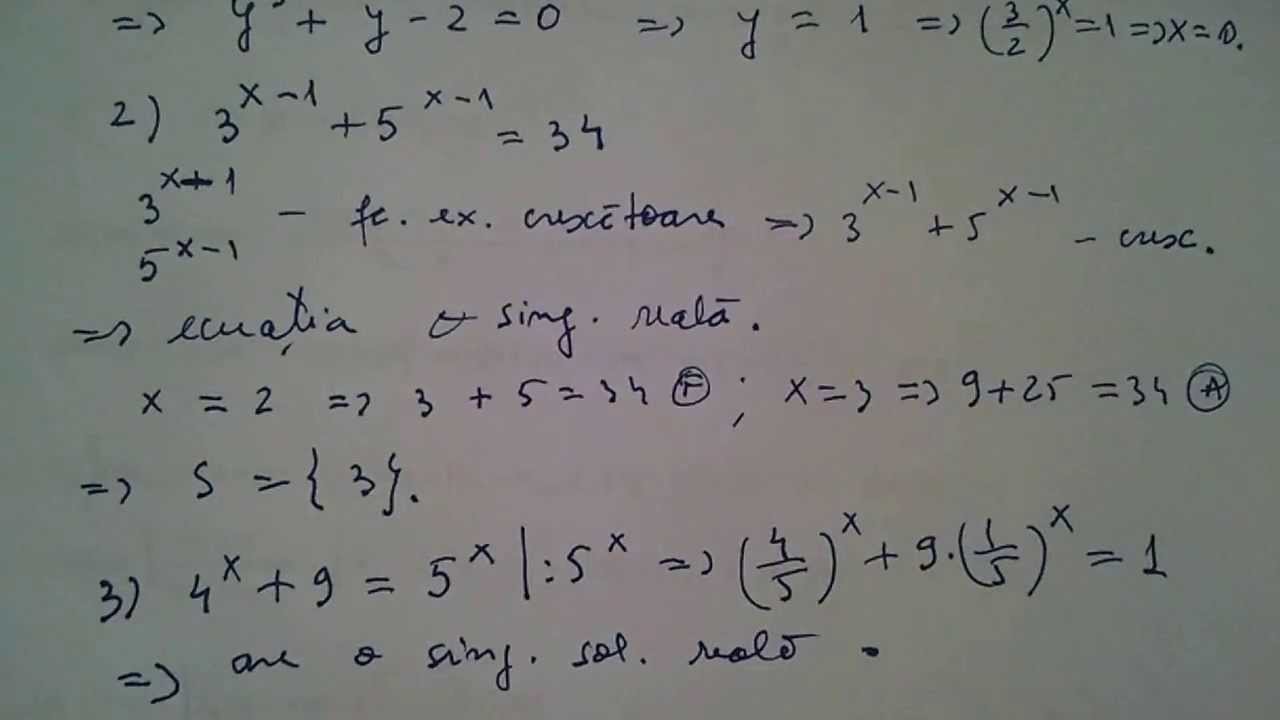 => y² + y - 2 = 0 => y = 1 => (3/2)^x = 1 => x = 0.
2) 3^(x-1) + 5^(x-1) = 34
3^(x+1)
5^(x-1) - fc. ex. crescătoare => 3^(x-1) + 5^(x-1) - cresc.
=> ecuația o sing. reală.
x = 2 => 3 + 5 = 34 Ⓕ ; x = 3 => 9 + 25 = 34 Ⓐ
=> S = {3}.
3) 4^x + 9 = 5^x | : 5^x => (4/5)^x + 9 · (1/5)^x = 1
=> are o sing. sol. reală.